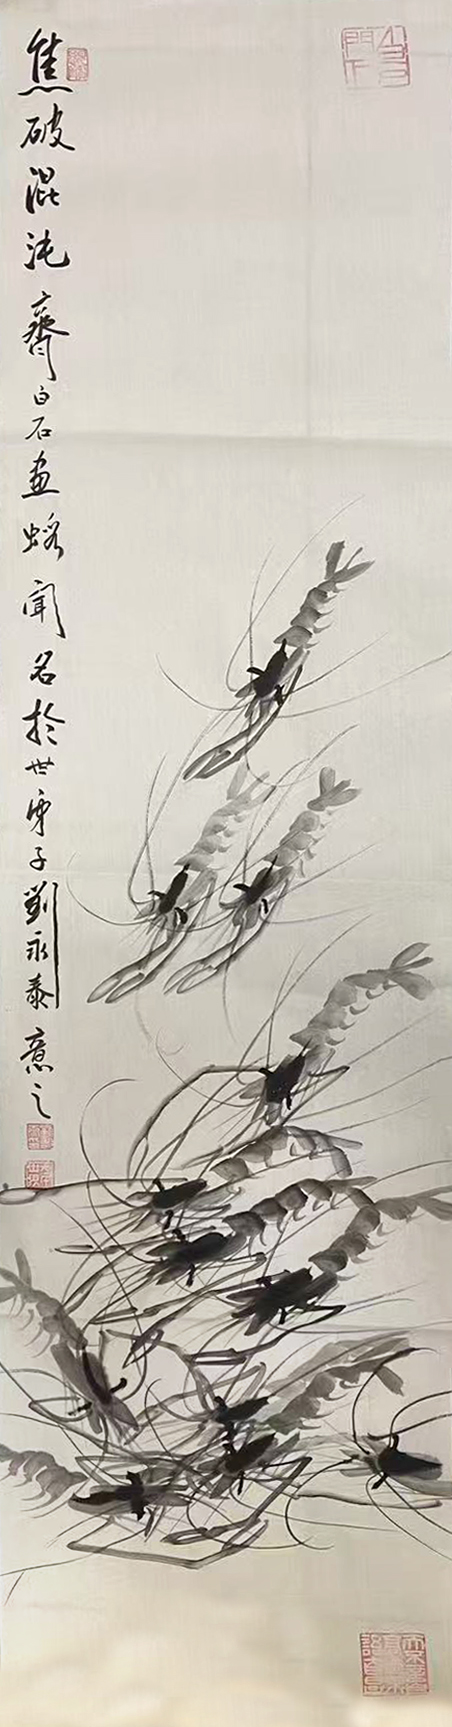 焦破混沌齊白石画蝦闻名於世弟子劉永泰意之